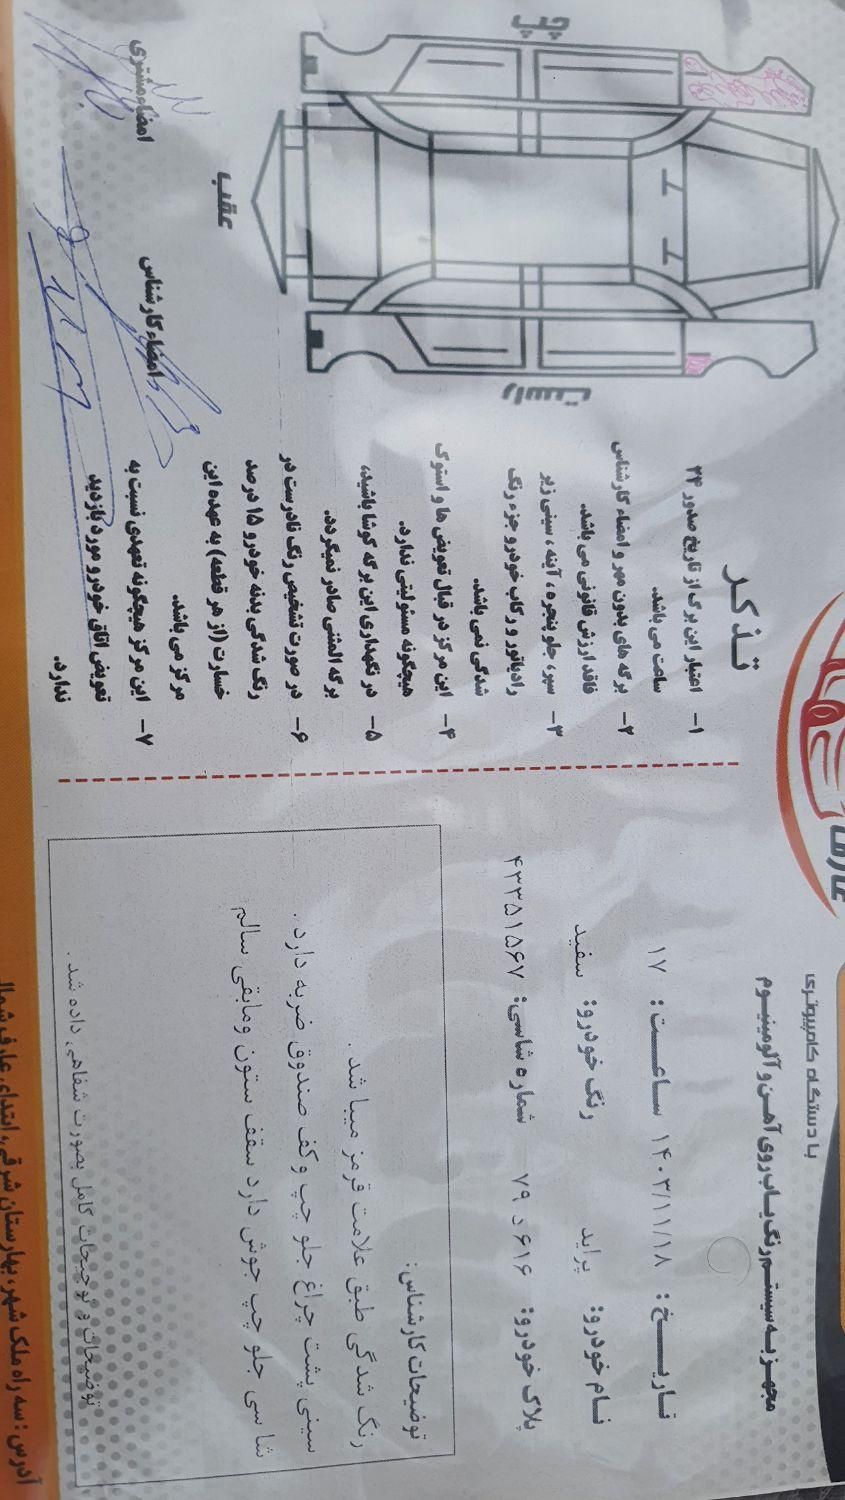 با دستگاه کامپیوتری
مجهز به سیستم رنگ یاب روی آهن و آلومینیوم
تاریخ: ۱۴۰۳/۱۱/۱۸ ساعت: ۱۷
نام خودرو: پراید رنگ خودرو: سفید
پلاک خودرو: ۶۱۶ د ۷۹ شماره شاسی: ۴۳۳۵۱۵۶۷
توضیحات کارشناس:
رنگ شدگی طبق علامت قرمز میبا شد .
سینی پشت چراغ جلو چپ وکف صندوق ضربه دارد .
شا سی جلو چپ جوش دارد سقف ستون ومابقی سالم
توضیحات و توجیحات کامل بصورت شفاهی داده شد .
تذکر
۱- اعتبار این برگ از تاریخ صدور ۲۴
ساعت می باشد.
۲- برگه های بدون مهر و امضاء کارشناس
فاقد ارزش قانونی می باشد.
۳- سپر، جلو پنجره، آینه، سینی زیر
رادیاتور و رکاب خودرو جزء رنگ
شدگی نمی باشد.
۴- این مرکز در قبال تعویض ها و استوک
هیچگونه مسئولیتی ندارد.
۵- در نگهداری این برگه کوشا باشید،
برگه المثنی صادر نمیگردد.
۶- در صورت تشخیص رنگ نادرست در
رنگ شدگی بدنه خودرو ۱۵ درصد
خسارت (از هر قطعه) به عهده این
مرکز می باشد.
۷- این مرکز هیچگونه تعهدی نسبت به
تعویض اتاق خودرو مورد بازدید
ندارد.
چپ
راست
عقب
امضاء کارشناس
امضاء مشتری
آدرس: سه راه ملک شهر، بهارستان شرقی، ابتدای عارف شمالی